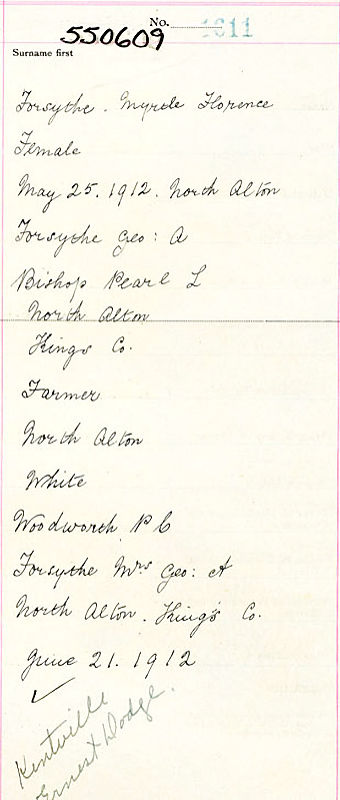 No. 1611
550609
Surname first
Forsythe. Myrtle Florence
Female
May 25. 1912. North Alton
Forsythe Geo: A
Bishop Pearl L
North Alton
Kings Co.
Farmer
North Alton
White
Woodworth P C
Forsythe Mrs Geo: A
North Alton. King's Co.
June 21. 1912
Kentville
Ernest Dodge.